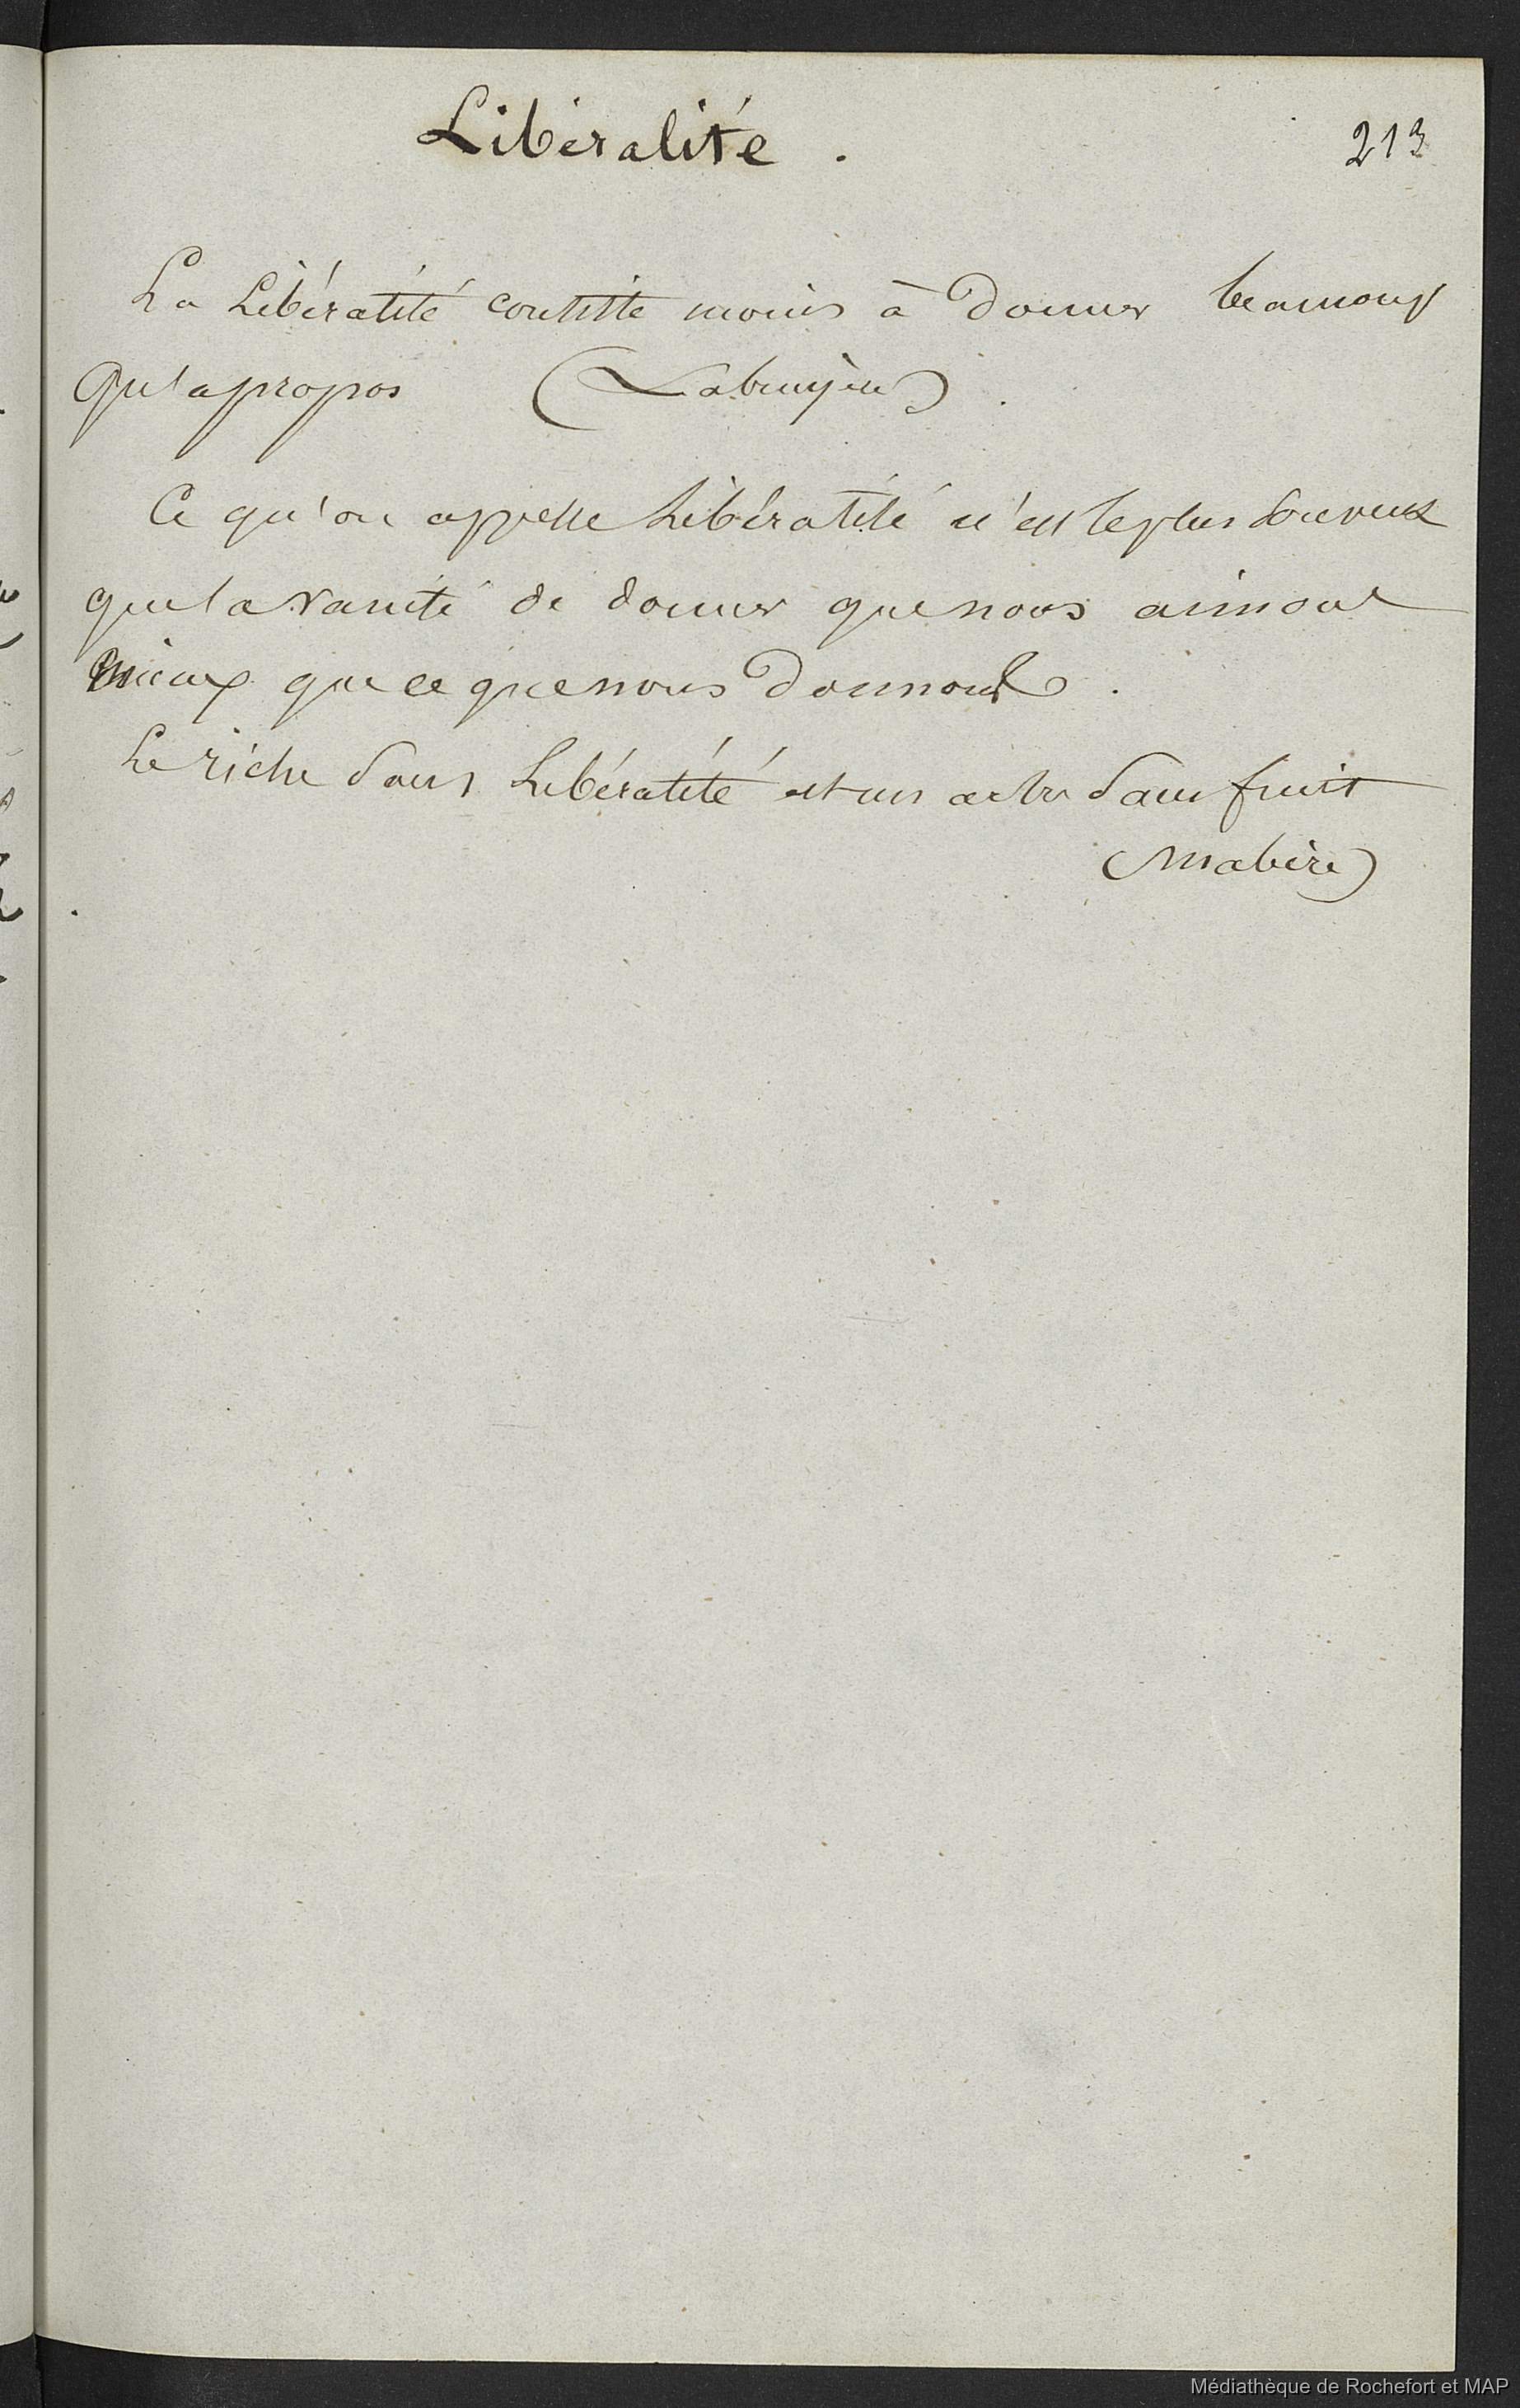 Libéralité .
213
La Libéralité consiste moins à donner beaucoup
qu'apropos (Labruyère) .
Ce qu'on appelle Libéralité n'est leplus souvent
que la vanité de donner que nous aimons
mieux que ce que nous donnons .
Le riche sans Libéralité est un arbre sans fruit
(Mabire)
Médiathèque de Rochefort et MAP